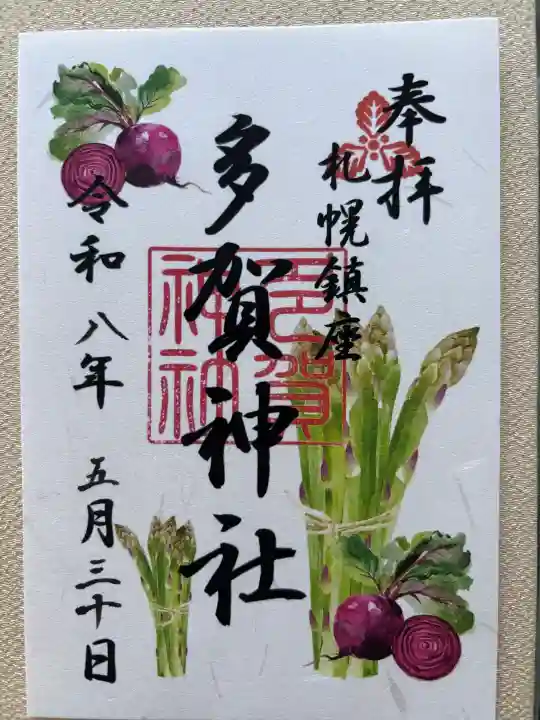 奉拝
札幌鎮座
多賀神社
令和八年 五月三十日